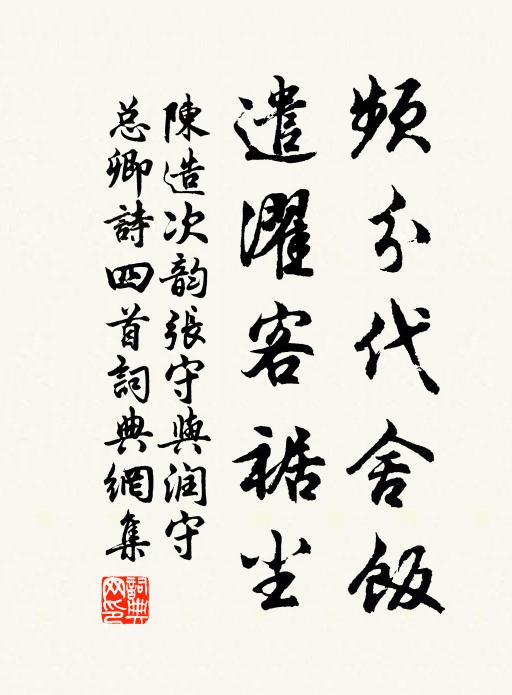 頻分代舍飯
遣濯客裾尘
陳造次韵張守與润守
总卿詩四首詞典網集
詞典